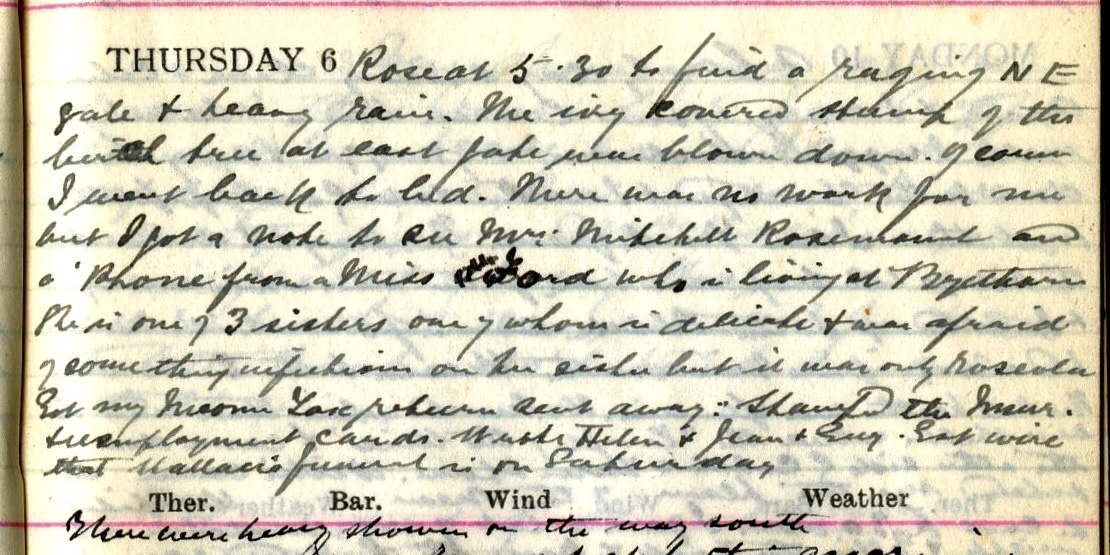 THURSDAY 6 Rose at 5.30 to find a raging N E
gale & heavy rain. The ivy covered stump of the
birch tree at east gate was blown down. Of course
I went back to bed. There was no work for me
but I got a note to see Mrs. Mitchell Rosemount and
a 'Phone from a Miss Ford who is living at
She is one of 3 sisters one of whom is delicate & was afraid
of something infectious on her sister but it was only roseola
Got my Income Tax return sent away. Stamped the Insur.
& unemployment cards. Wrote Helen & Jean & Guy. Got wire
that Wallace's funeral is on Saturday
Ther. Bar. Wind Weather
There were heavy showers on the way south